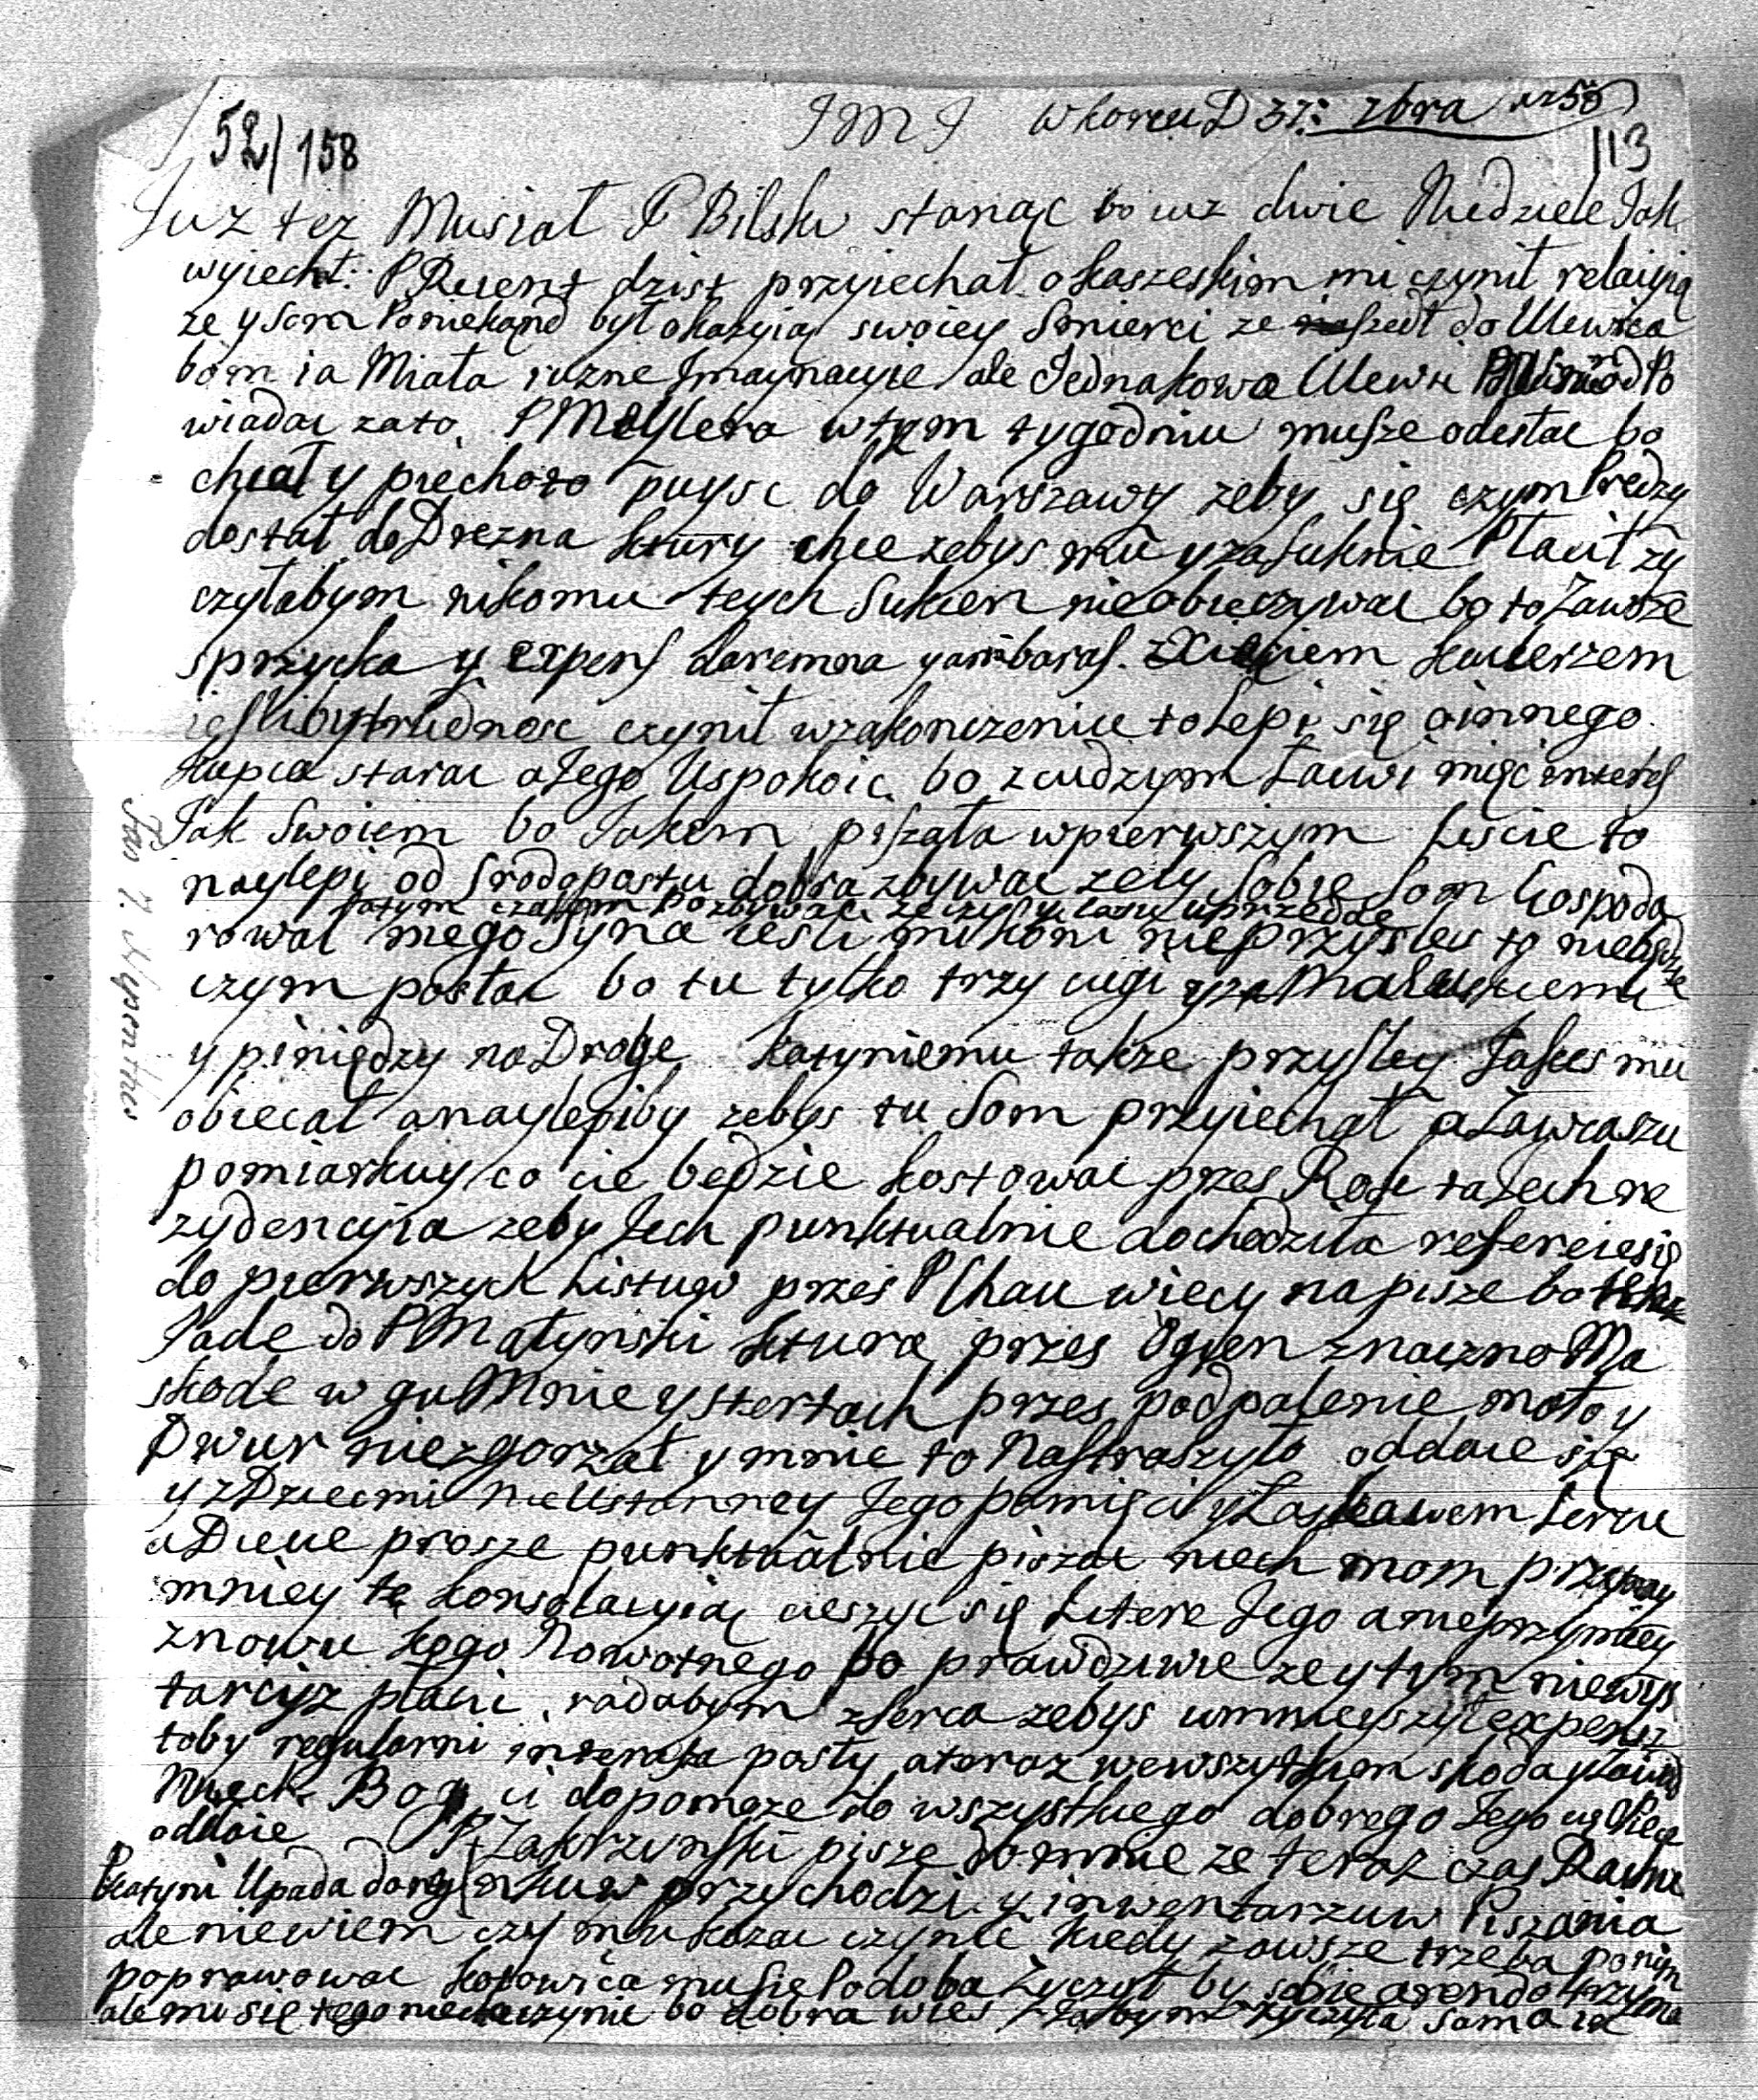 JMJ w korcu D 31: zbra 1758
52/158
113
Juz tez Musiał P Bilski stanąc bo iuz dwie Niedziele Jak
wyiechł. P Reient dzist przyiechał o kaszeskim mi czynił relaiyią
ze y som Poniekąnd był okazyią swoiey smierci ze szedł do Ulewica
bom ia Miała rozne Jmaynacyie ale Jednakowo Ulewi odPo
wiadac zato, P Meylera wtym tygodniu musze odesłac bo
chciał y piechoto puysc do Warszawy zeby się czym Prędzy
dostał do Drezna ktury chce zebys mu y za suknie Płacił zy
czyłabym nikomu tych Sukien nieobieczywac bo to Zawsze
sprzycka y expens daremna y ambaras. z Xięciem kanclerzem
iesliby trudnosc czynił wzakonczeniu to Lepi się oinnego
kupca starac a Jego Uspokoic, bo zcudzym Łacwi miec interes
Jak Swoiem bo Jakem pisała wpierwszym Liscie to
naylepi od srodopostu dobra zbywac zeby sobie som Gospoda
tatym czasem pozbywac zeczy y lasu uprzedac
rowal mego Syna iesli mi koni nieprzyslesz to niebędzie
czym posłac bo tu tylko trzy cugi y za
y piniędzy na Droge katyniemu takze przysley Jakes mu
obiecał anaylepiby zebys tu Som przyiechał a Zawczasu
pomiarkuy co cie będzie kostowac przes Rok ta Jech re
zydencyia zeby Jech punktualnie dochodziła refereiesię
do pierwszych Listuw przes P Chau wiecy napisze bo teraz
Jade do P Małynski ktura przes Ogien znaczno Ma
skode w guMnie y stertach przes podpalenie mało y
Dwur niezgorzał y mnie to Nastraszyło oddaie się
y z Dziecmi nieUstanney Jego pamięci y Łaskawem Sercu
aDieue prosze punktualnie pisac niech mam przynay
mniey tę konsolacyią cieszyc się Litere Jego anieprzymuy
znowu kogo Nowotnego bo prawdziwie ze y tym niewys
tarcysz płaci, radabym zserca zebys umnieyszył expens
toby regularni interesa posły ateraz wewszytkiem skoda y
Niech Bog ci dopomoze do wszystkiego dobrego Jego Opiece
oddaie P Zakrzewski pisze do mnie ze teraz czas Rachu
katyni Upada dony nkuw przychodzi y inwentarzuw Pisania
ale niewiem czy mu kazac czynic kiedy zawsze trzeba ponim
poprawowac kotowica mu się Podoba Zyczył by sobie arendo trzymac
ale mu się tego niechce czynic bo dobra wies zyczyła sama ia